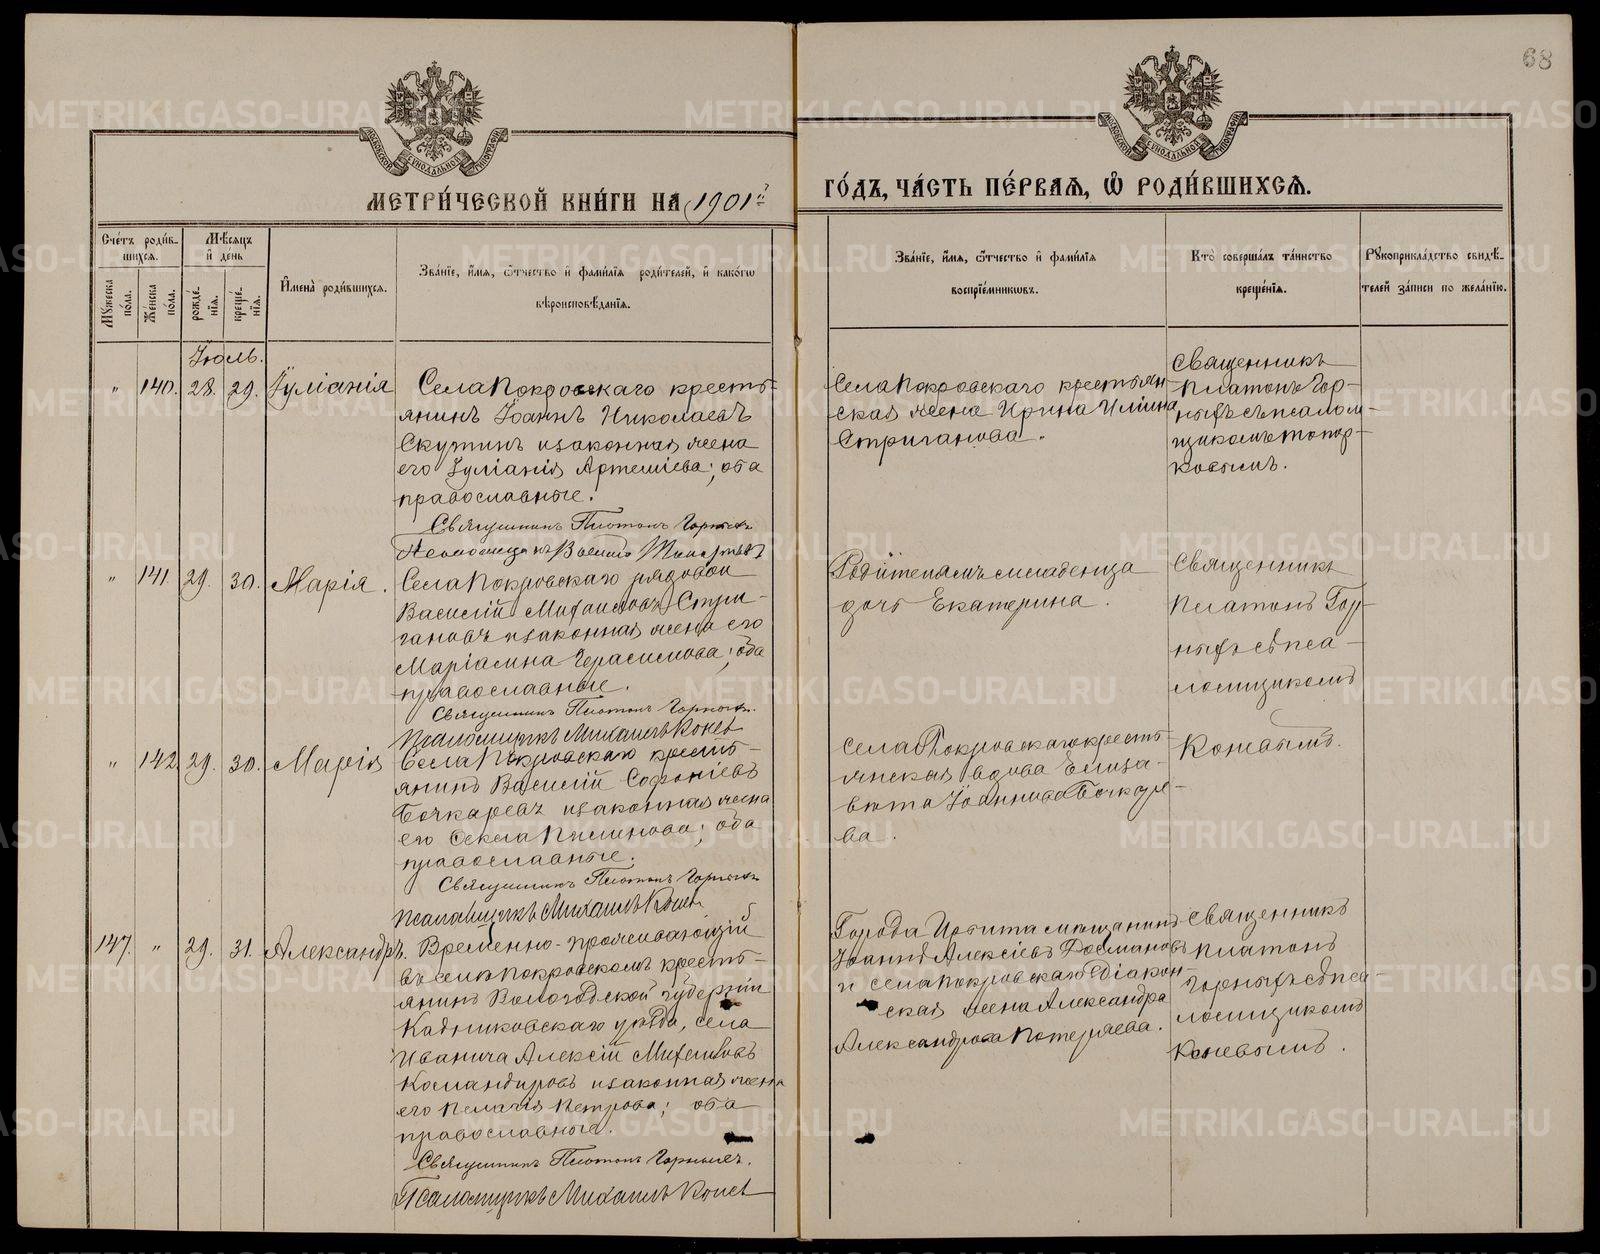 68
МЕТРИ́ЧЕСКОЙ КНИ́ГИ НА 1901й
ГО́ДЪ, ЧА́СТЬ ПЕ́РВАѦ, Ѿ РОДИ́ВШИХСѦ.
Сче́тъ роди́в-
шихсѧ.
Мѣ́сѧцъ
и҆ де́нь
И҆мена̀ роди́вшихсѧ.
Зва́нїе, и҆́мѧ, ѻ҆́тчество и҆ фами́лїѧ роди́телей, и҆ како́гѡ
вѣроисповѣ́данїѧ.
Мꙋ́жеска по́ла.
Же́нска по́ла.
рожде́нїѧ.
креще́нїѧ.
Зва́нїе, и҆́мѧ, ѻ҆́тчество и҆ фами́лїѧ
воспрїе́мниковъ.
Кто̀ соверша́лъ та́инство
креще́нїѧ.
Рꙋкоприкла́дство свидѣ́-
телей за́писи по жела́нїю.
Іюль.
" 140. 28. 29. Іуліанія
Села Покровскаго кресть-
янинъ Іоаннъ Николаевъ
Скутинъ и законная жена
его Іуліанія Артеміева; оба
православные.
Священникъ Платонъ Горныхъ
Села Покровскаго крестьян-
ская жена Ирина Ильина
Стриганова.
Священникъ
Платонъ Гор-
ныхъ съ псалом-
щикомъ Топор-
ковымъ.
" 141. 29. 30. Марія.
Села Покровскаго рядовой
Василій Михаиловъ Стри-
гановъ и законная жена его
Маріамна Герасимова; оба
православные.
Священникъ Платонъ Горныхъ.
Псаломщикъ Михаилъ Коневъ
Родителямъ младенца
дочь Екатерина.
Священникъ
Платонъ Гор-
ныхъ съ пса-
ломщикомъ
" 142. 29. 30. Марія
Села Покровскаго кресть-
янинъ Василій Софоніевъ
Бочкаревъ и законная жена
его Секла Пименова; оба
православные.
Священникъ Платонъ Горныхъ
Псаломщикъ Михаилъ Коневъ
Села Покровскаго кресть-
янская вдова Елиза-
вета Іоаннова Бочкаре-
ва.
Коневымъ.
147. " 29. 31. Александръ.
Временно-проживающій
въ селѣ Покровскомъ кресть-
янинъ Вологодской губерніи
Кадниковскаго уѣзда, села
Иванича Алексій Михаиловъ
Командировъ и законная жена
его Пелагія Петрова; оба
православные.
Священникъ Платонъ Горныхъ.
Псаломщикъ Михаилъ Коневъ
Города Ирбита мѣщанинъ
Іоаннъ Алексіевъ
и села Покровскаго діакон-
ская жена Александра
Александрова Потеряева.
Священникъ
Платонъ
Горныхъ съ пса-
ломщикомъ
Коневымъ.
METRIKI.GASO-URAL.RU